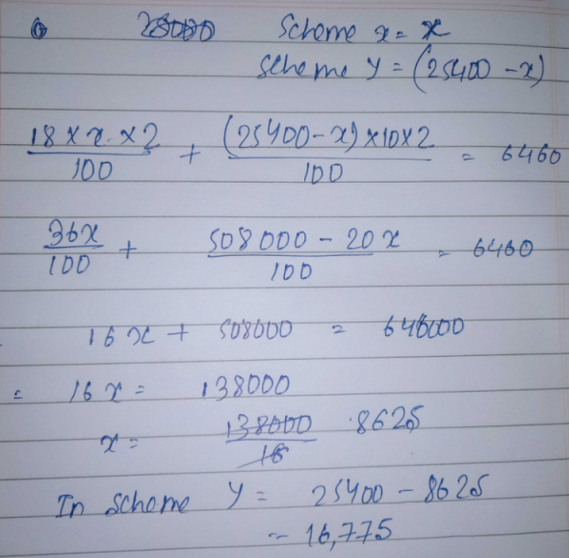 Scheme x = x
Scheme Y = (25400 - x)
18 × x × 2 / 100 + (25400 - x) × 10 × 2 / 100 = 6460
36x / 100 + 508000 - 20x / 100 = 6460
16x + 508000 = 646000
= 16x = 138000
x = 138000 / 16 · 8625
In scheme Y = 25400 - 8625
= 16,775